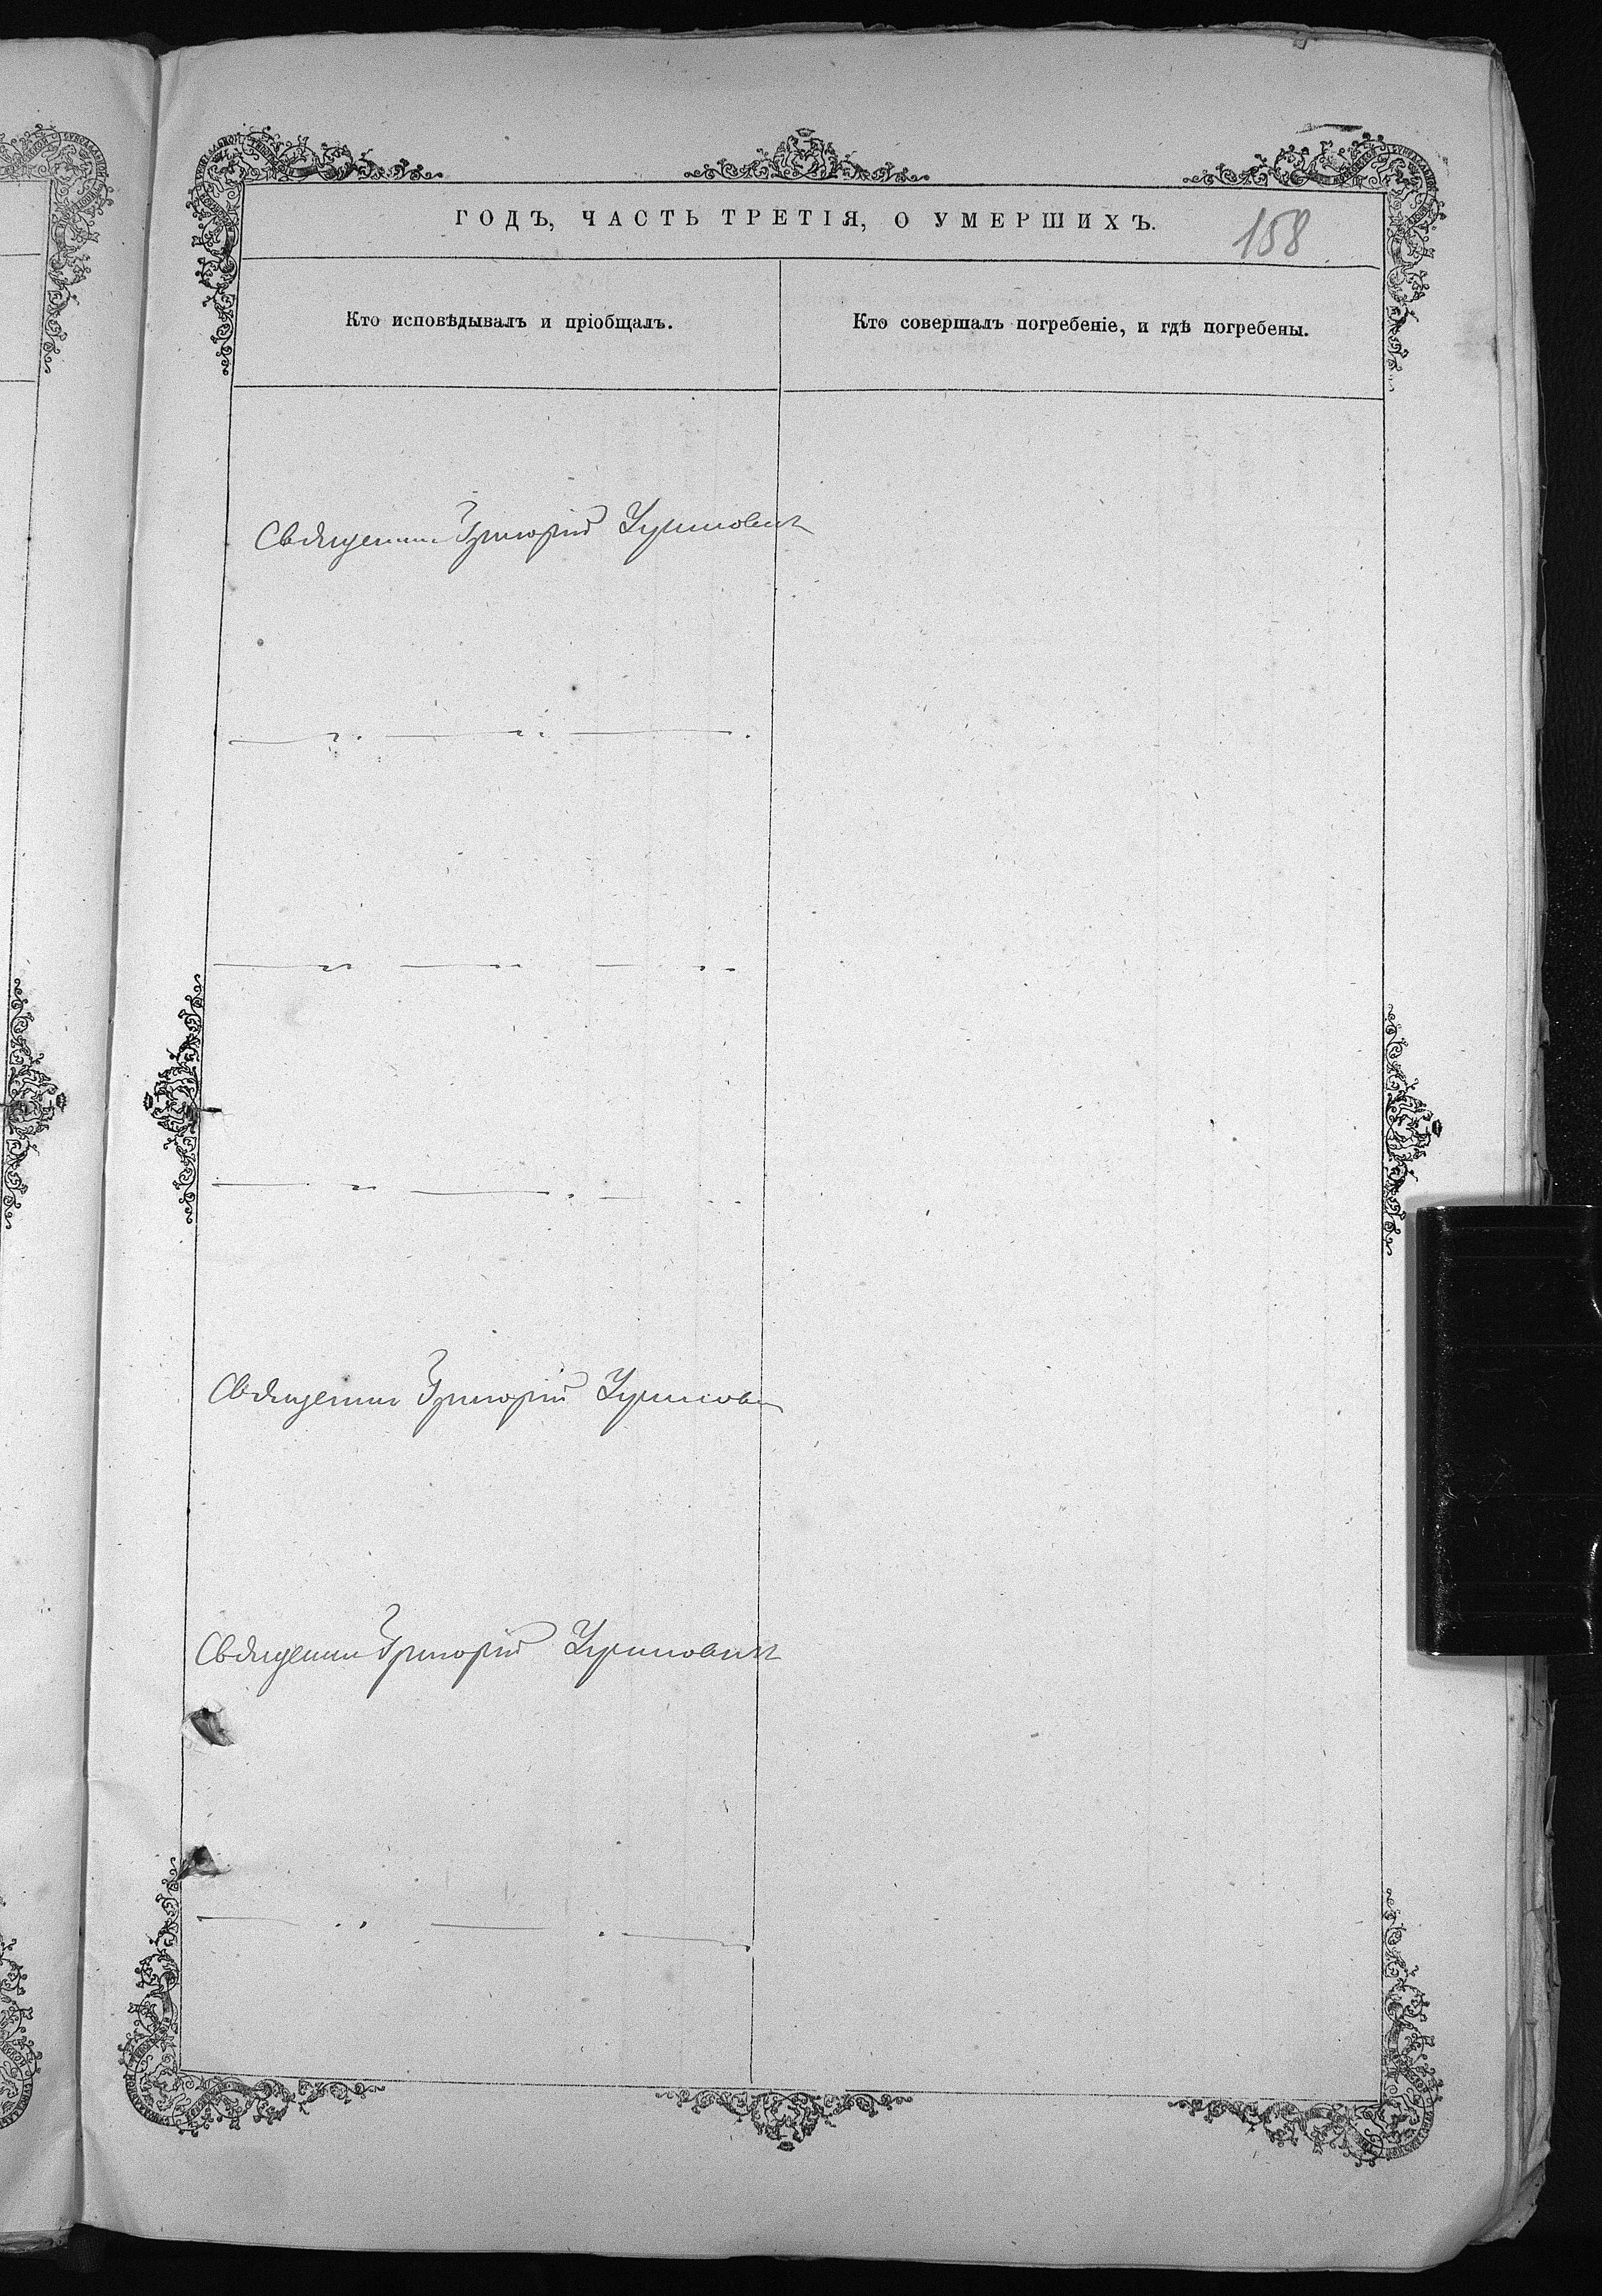 ГОДЪ, ЧАСТЬ ТРЕТІЯ, О УМЕРШИХЪ.
158
Кто исповѣдывалъ и пріобщалъ.
Кто совершалъ погребеніе, и гдѣ погребены.
Священник Григорій
Священник Григорій
Священник Григорій